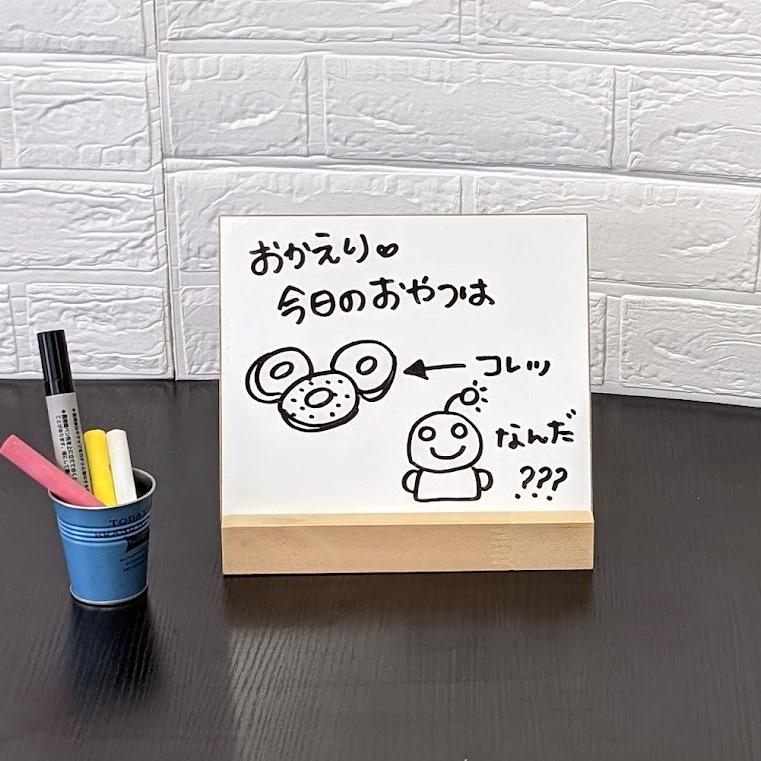 おかえり♥
今日のおやつは
コレッ
なんだ
???
TODAY